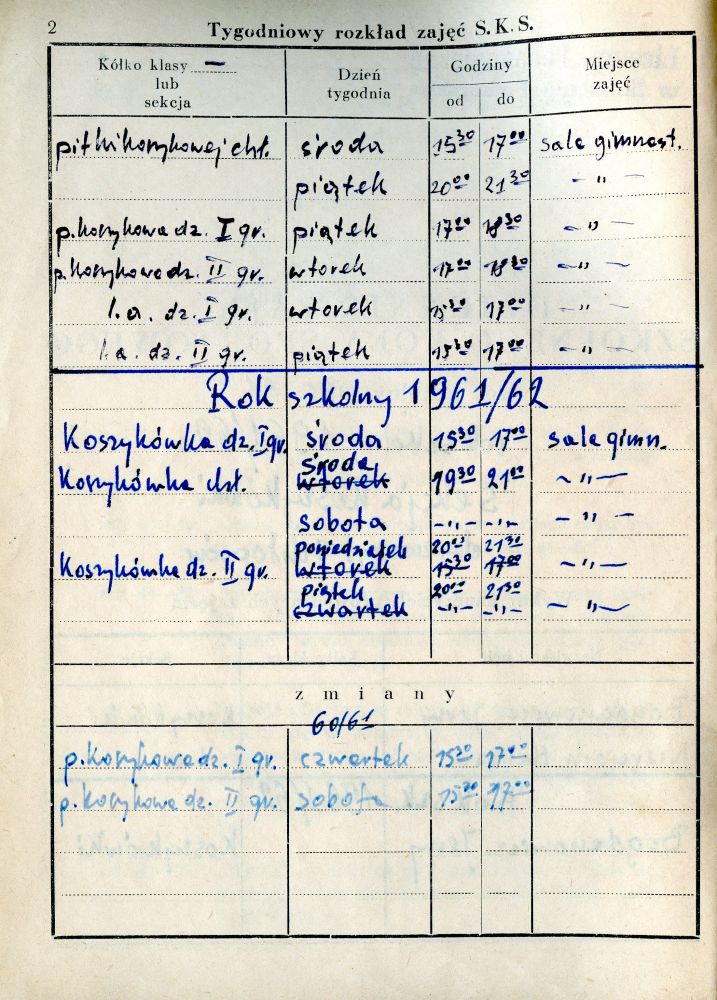 2
Tygodniowy rozkład zajęć S. K. S.
Kółko klasy —
lub
sekcja
Dzień
tygodnia
Godziny
od do
Miejsce
zajęć
piłki koszykowej chł. środa 15³⁰ 17⁰⁰ sala gimnast.
piątek 20⁰⁰ 21³⁰ — " —
p. koszykowa dz. I gr. piątek 17⁰⁰ 18³⁰ — " —
p. koszykowa dz. II gr. wtorek 17⁰⁰ 18³⁰ — " —
l. a. dz. I gr. wtorek 15³⁰ 17⁰⁰ — " —
l. a. dz. II gr. piątek 15³⁰ 17⁰⁰ — " —
Rok szkolny 1961/62
Koszykówka dz. I gr. środa 15³⁰ 17⁰⁰ sala gimn.
środa
Koszykówka chł. wtorek 19³⁰ 21⁰⁰ — " —
sobota — " — — " — — " —
poniedziałek 20⁰⁰ 21³⁰
Koszykówka dz. II gr. wtorek 15³⁰ 17⁰⁰ — " —
piątek 20⁰⁰ 21³⁰
czwartek — " — — " — — " —
zmiany
60/61
p. koszykowa dz. I gr. czwartek 15³⁰ 17⁰⁰
p. koszykowa dz. II gr. sobota 15³⁰ 17⁰⁰